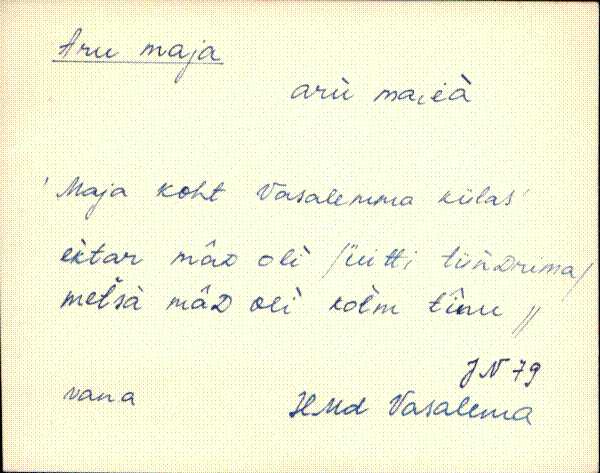 Aru maja
arù ma͕ià
'Maja koht Vasalemma külas'
èktar mâD olì /üitti tüǹDrima/
metsà mâD olì kolm tînu //
JN 79
vana HMd Vasalema